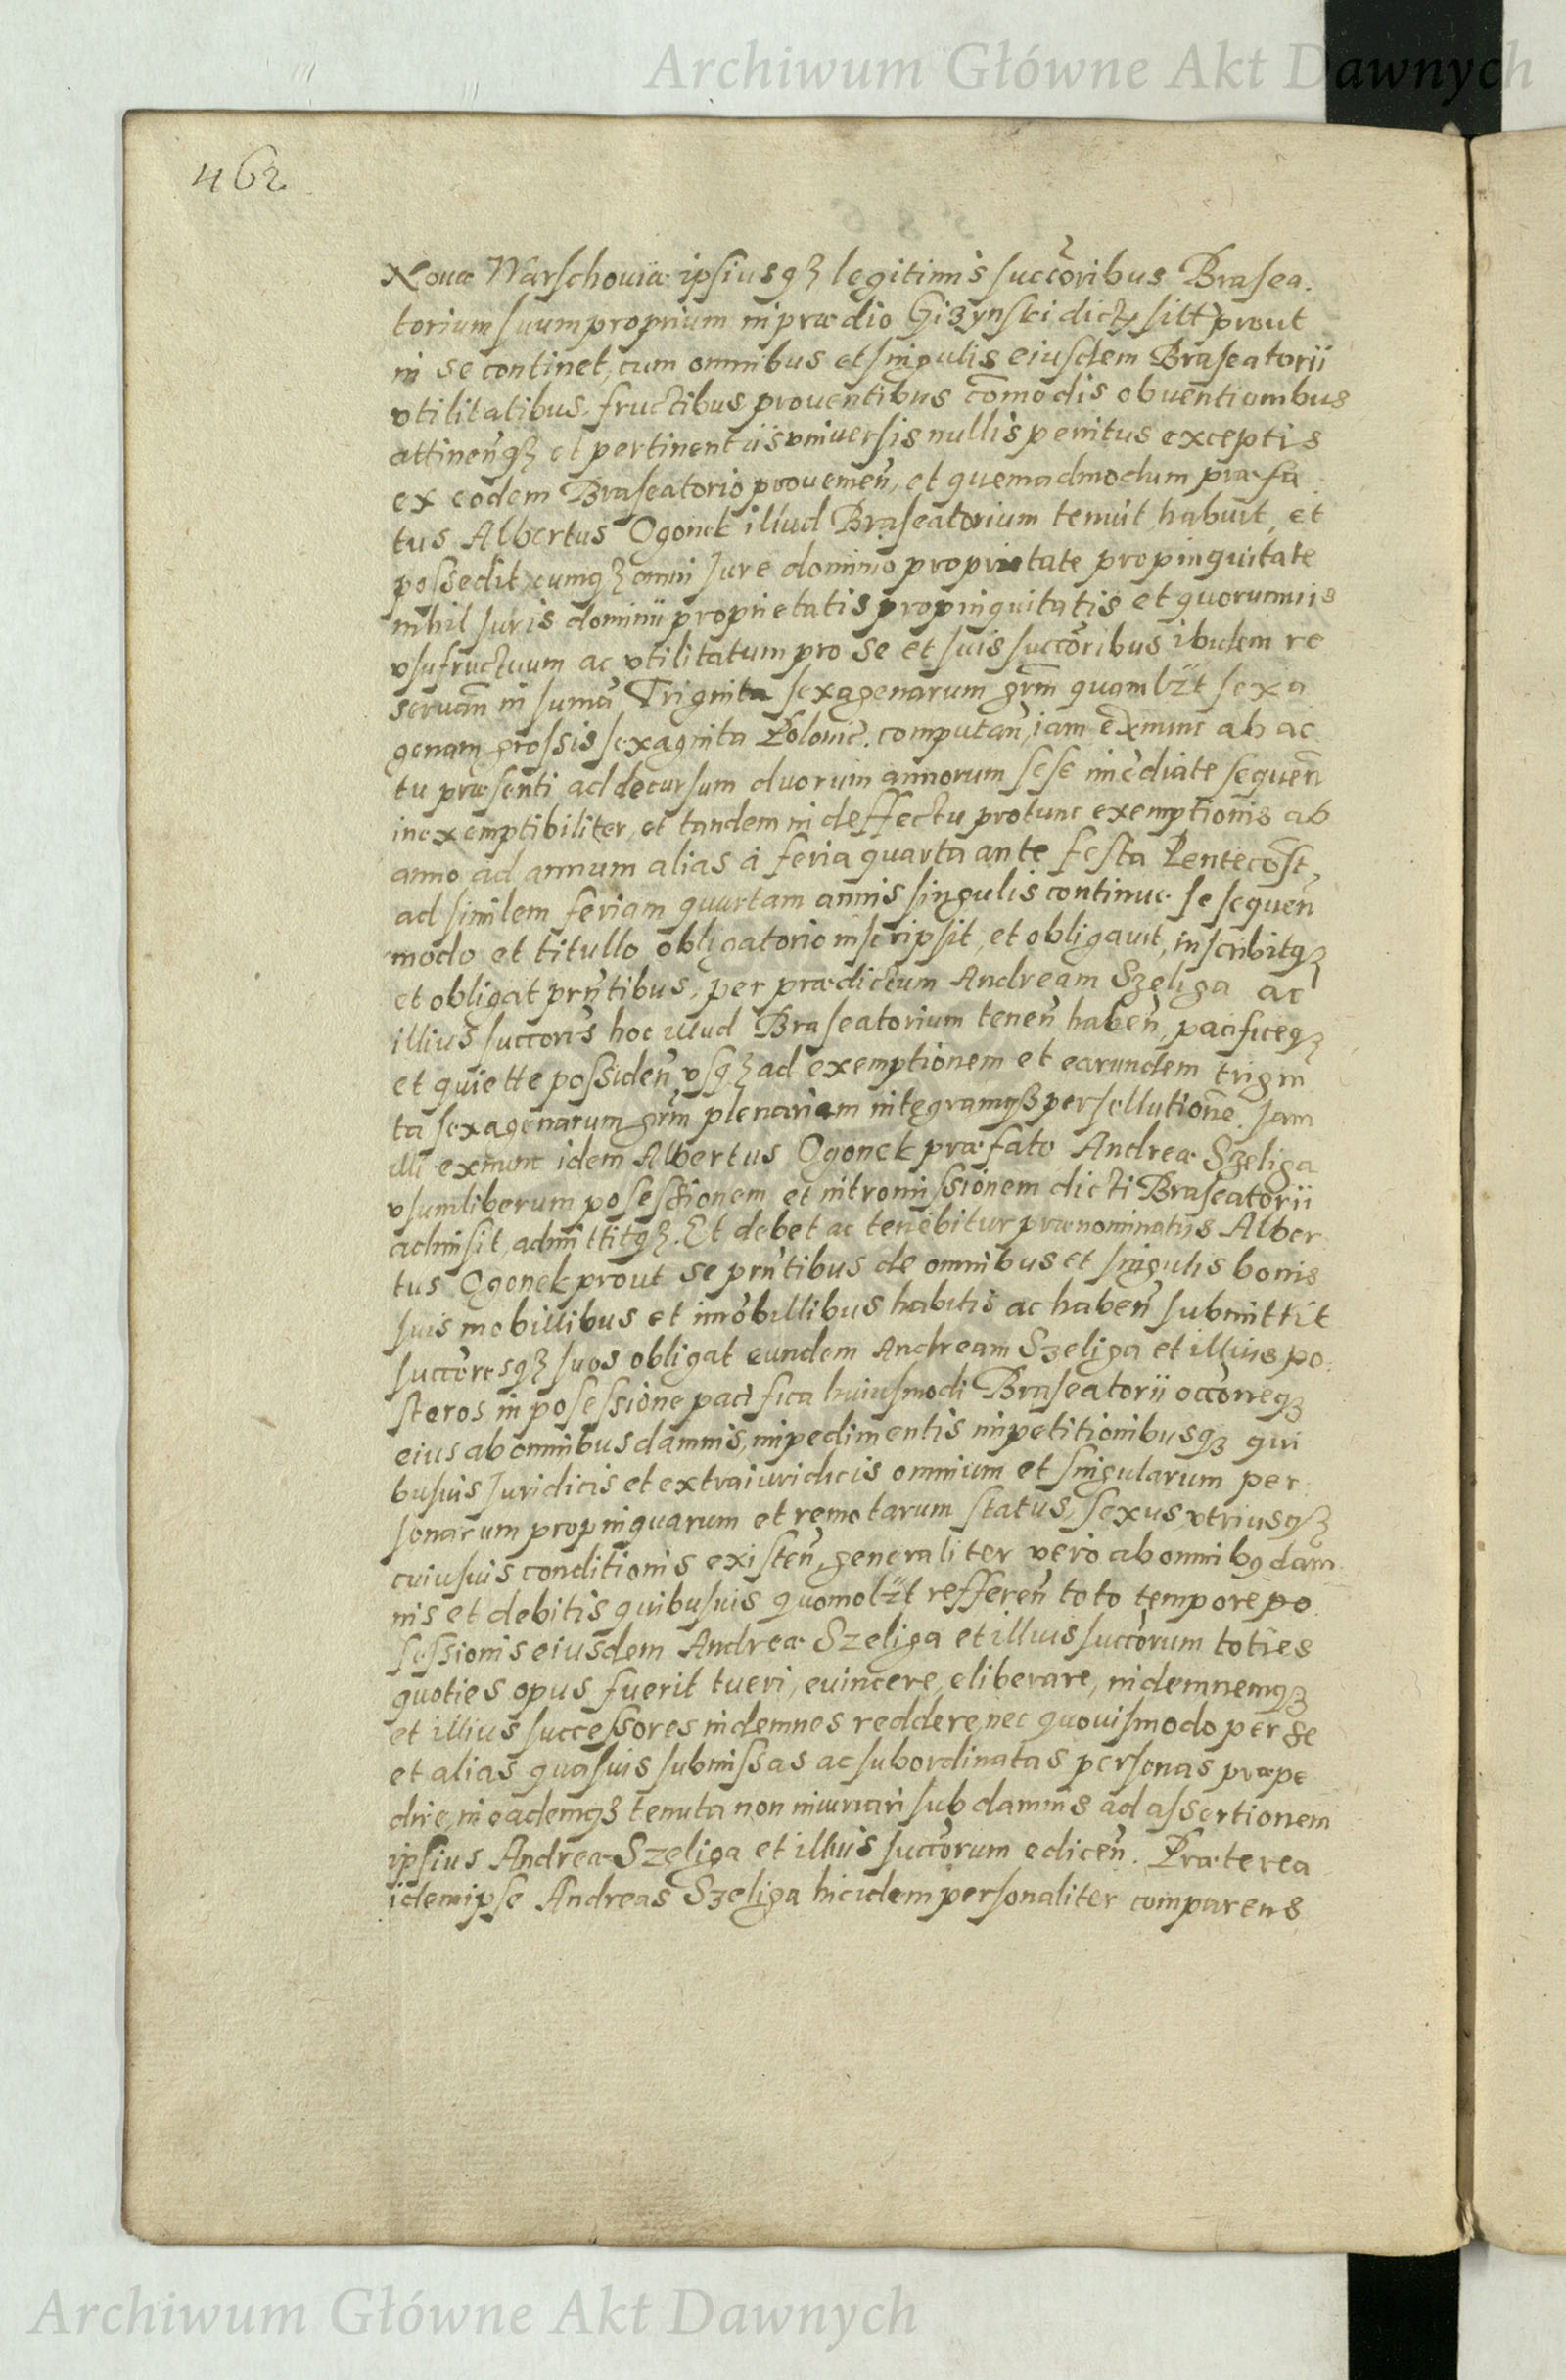 Archiwum Główne Akt Dawnych
462
Nouæ Warschouiæ ipsiusqȝ legitimis succōribus Brasea.
torium suum proprium in prædio Giżynski dict sitt prout
in se continet, cum omnibus et singulis eiusdem Braseatorii
vtilitatibus fructibus prouentibus cōmodis obuentionibus
attinen̄qȝ et pertinentiis vniuersis nullis penitus exceptis
ex eodem Braseatorio prouenien̄, et quemadmodum præfa
tus Albertus Ogonek illud Braseatorium tenuit, habuit, et
possedit, cumqȝ omni Jure dominio proprietate propinquitate
nihil Juris dominii proprietatis propinquitatis et quorumuis
vsufructuum ac vtilitatum pro se et suis succōribus ibidem re
seruan̄ in sumā Triginta sexagenarum grm̄ quamlȝt sexa
genam grossis sexaginta Polonic. computan̄, iam exnunc ab ac
tu præsenti ad decursum duorum annorum sese im̄ediate sequen̄
inexemptibiliter, et tandem in deffectu protunc exemptionis ab
anno ad annum alias á feria quarta ante festa Pentecost,
ad similem feriam quartam annis singulis continue se sequen̄
modo et titullo obligatorio inscripsit, et obligauit, inscribitqȝ
et obligat prn̄tibus, per prædictum Andream Szeliga ac
illius succoris hoc illud Braseatorium tenen̄ haben̄, pacificeqȝ
et quiette possiden̄ vsqȝ ad exemptionem et earundem trigin
ta sexagenarum grm̄ plenariam integramqȝ persollutionē. Jam
illi exnunc idem Albertus Ogonek præfato Andreæ Szeliga
vsum liberum posessionem et intromissionem dicti Braseatorii
admisit, admittitqȝ. Et debet ac tenebitur prænominatus Alber
tus Ogonek prout se prn̄tibus de omnibus et singulis bonis
suis mobillibus et im̄obillibus habitis ac haben̄ submittit
succōresqȝ suos obligat eundem Andream Szeliga et illius po.
steros in posessione pacifica huiusmodi Braseatorii occōneqȝ
eius ab omnibus damnis, impedimentis impetitionibusqȝ qui
busuis Juridicis et extraiuridicis omnium et singularum per.
sonarum propinquarum et remotarum status, sexus, vtriusqȝ
cuiusuis conditionis existen̄, generaliter vero ab omnibꝯ dam
nis et debitis quibusuis quomolȝt refferen̄ toto tempore po
sessionis eiusdem Andreæ Szeliga et illius succōrum toties
quoties opus fuerit tueri, euincere, eliberare, indemnemqȝ
et illius successores indemnes reddere, nec quouismodo per se
et alias quasuis submissas ac subordinatas personas præpe
dire, in eademqȝ tenuta non iniuriari sub damnis ad assertionem
ipsius Andreæ Szeliga et illius succōrum edicen̄. Præterea
idem ipse Andreas Szeliga hic idem personaliter comparens
Archiwum Główne Akt Dawnych